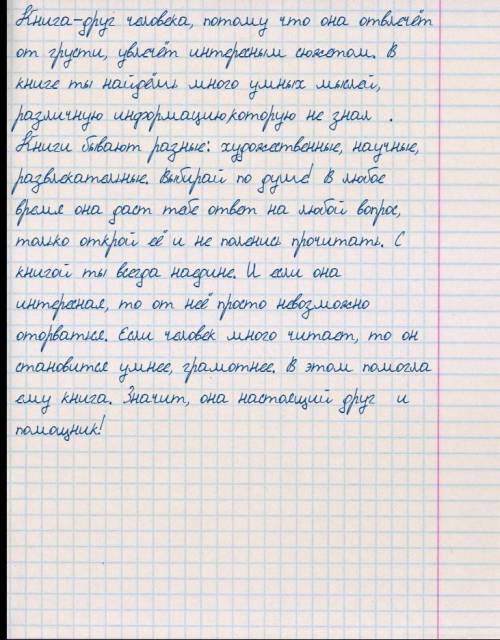 Книга-друг человека, потому что она отвлечёт
от грусти, увлечёт интересным сюжетом. В
книге ты найдёшь много умных мыслей,
различную информацию,которую не знал .
Книги бывают разные: художественные, научные,
развлекательные. Выбирай по душе! В любое
время она даст тебе ответ на любой вопрос,
только открой её и не поленись прочитать. С
книгой ты всегда наедине. И если она
интересная, то от неё просто невозможно
оторваться. Если человек много читает, то он
становится умнее, грамотнее. В этом помогла
ему книга. Значит, она настоящий друг и
помощник!